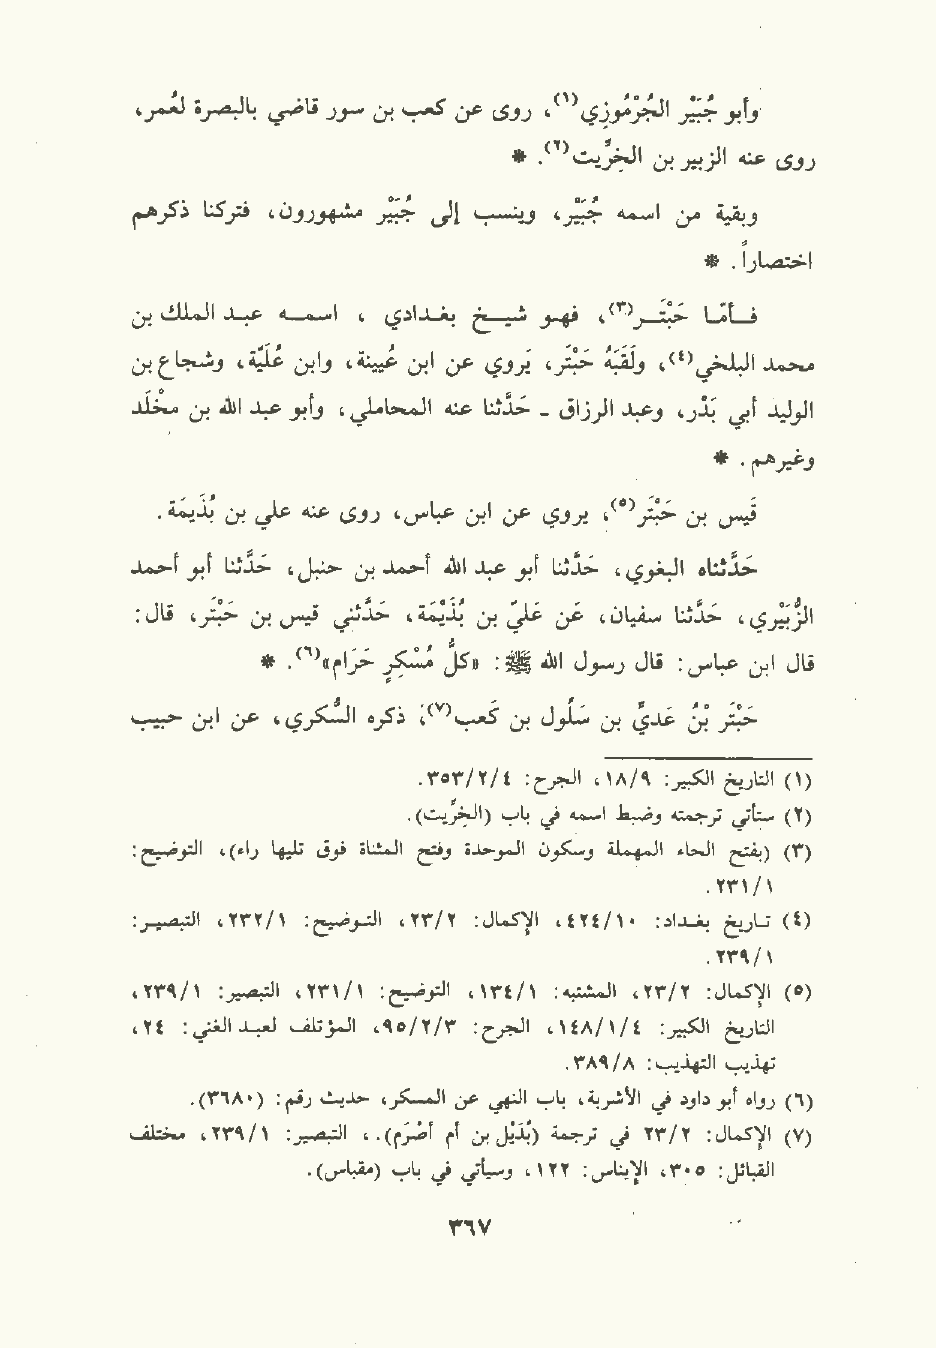 وأبو جُبَيْر الجُرْمُوزِي(١)، روى عن كعب بن سور قاضي بالبصرة لعُمر،
روى عنه الزبير بن الخِرِّيت(٢). *
وبقية من اسمه جُبَيْر، وينسب إلى جُبَيْر مشهورون، فتركنا ذكرهم
اختصاراً. *
فأمّا حَبْتَر(٣)، فهو شيخ بغدادي ، اسمه عبد الملك بن
محمد البلخي(٤)، ولَقَبُهُ حَبْتَر، يُروي عن ابن عُيينة، وابن عُلَيَّة، وشجاع بن
الوليد أبي بَدْر، وعبد الرزاق - حَدّثنا عنه المحاملي، وأبو عبد الله بن مخْلَد
وغيرهم. *
قَيس بن حَبْتَر(٥)، يروي عن ابن عباس، روى عنه علي بن بُذَيمَة.
حَدَّثناه البغوي، حَدَّثنا أبو عبد الله أحمد بن حنبل، حَدَّثنا أبو أحمد
الزُّبَيْري، حَدَّثنا سفيان، عَن عَليّ بن بُذَيْمَة، حَدَّثني قيس بن حَبْتَر، قال:
قال ابن عباس: قال رسول الله ﷺ: «كلُّ مُسْكِرٍ حَرَام»(٦). *
حَبْتَر بْنُ عَديّ بن سَلُول بن كَعب(٧)، ذكره السُّكري، عن ابن حبيب
(١) التاريخ الكبير: ١٨/٩، الجرح: ٣٥٣/٢/٤.
(٢) ستأتي ترجمته وضبط اسمه في باب (الخِرِّيت).
(٣) (بفتح الحاء المهملة وسكون الموحدة وفتح المثناة فوق تليها راء)، التوضيح:
٢٣١/١.
(٤) تاريخ بغداد: ٤٢٤/١٠، الإكمال: ٢٣/٢، التوضيح: ٢٣٢/١، التبصير:
٢٣٩/١.
(٥) الإكمال: ٢٣/٢، المشتبه: ١٣٤/١، التوضيح: ٢٣١/١، التبصير: ٢٣٩/١،
التاريخ الكبير: ١٤٨/١/٤، الجرح: ٩٥/٢/٣، المؤتلف لعبد الغني: ٢٤،
تهذيب التهذيب: ٣٨٩/٨.
(٦) رواه أبو داود في الأشربة، باب النهي عن المسكر، حديث رقم: (٣٦٨٠).
(٧) الإكمال: ٢٣/٢ في ترجمة (بُدَيْل بن أم أصْرَم).، التبصير: ٢٣٩/١، مختلف
القبائل: ٣٠٥، الإيناس: ١٢٢، وسيأتي في باب (مقباس).
٣٦٧